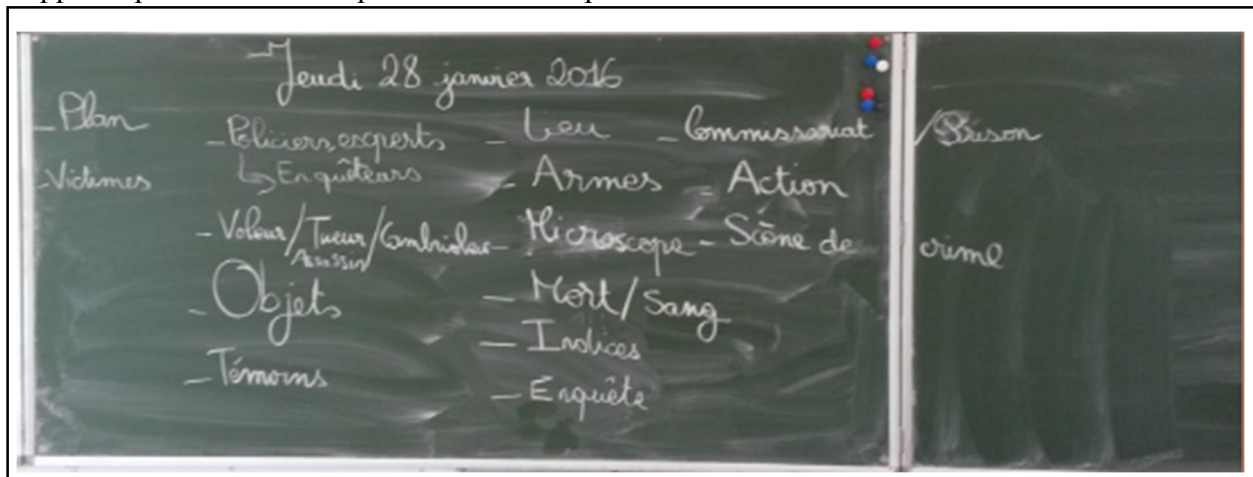 Jeudi 28 janvier 2016
- Plan
- Victimes
- Policiers, experts
↳ Enquêteurs
- Voleur/Tueur/Cambrioleur
Assassin
- Objets
- Témoins
- Lieu
- Armes
- Microscope
- Mort/Sang
- Indices
- Enquête
- Commissariat /Prison
- Action
- Scène de crime